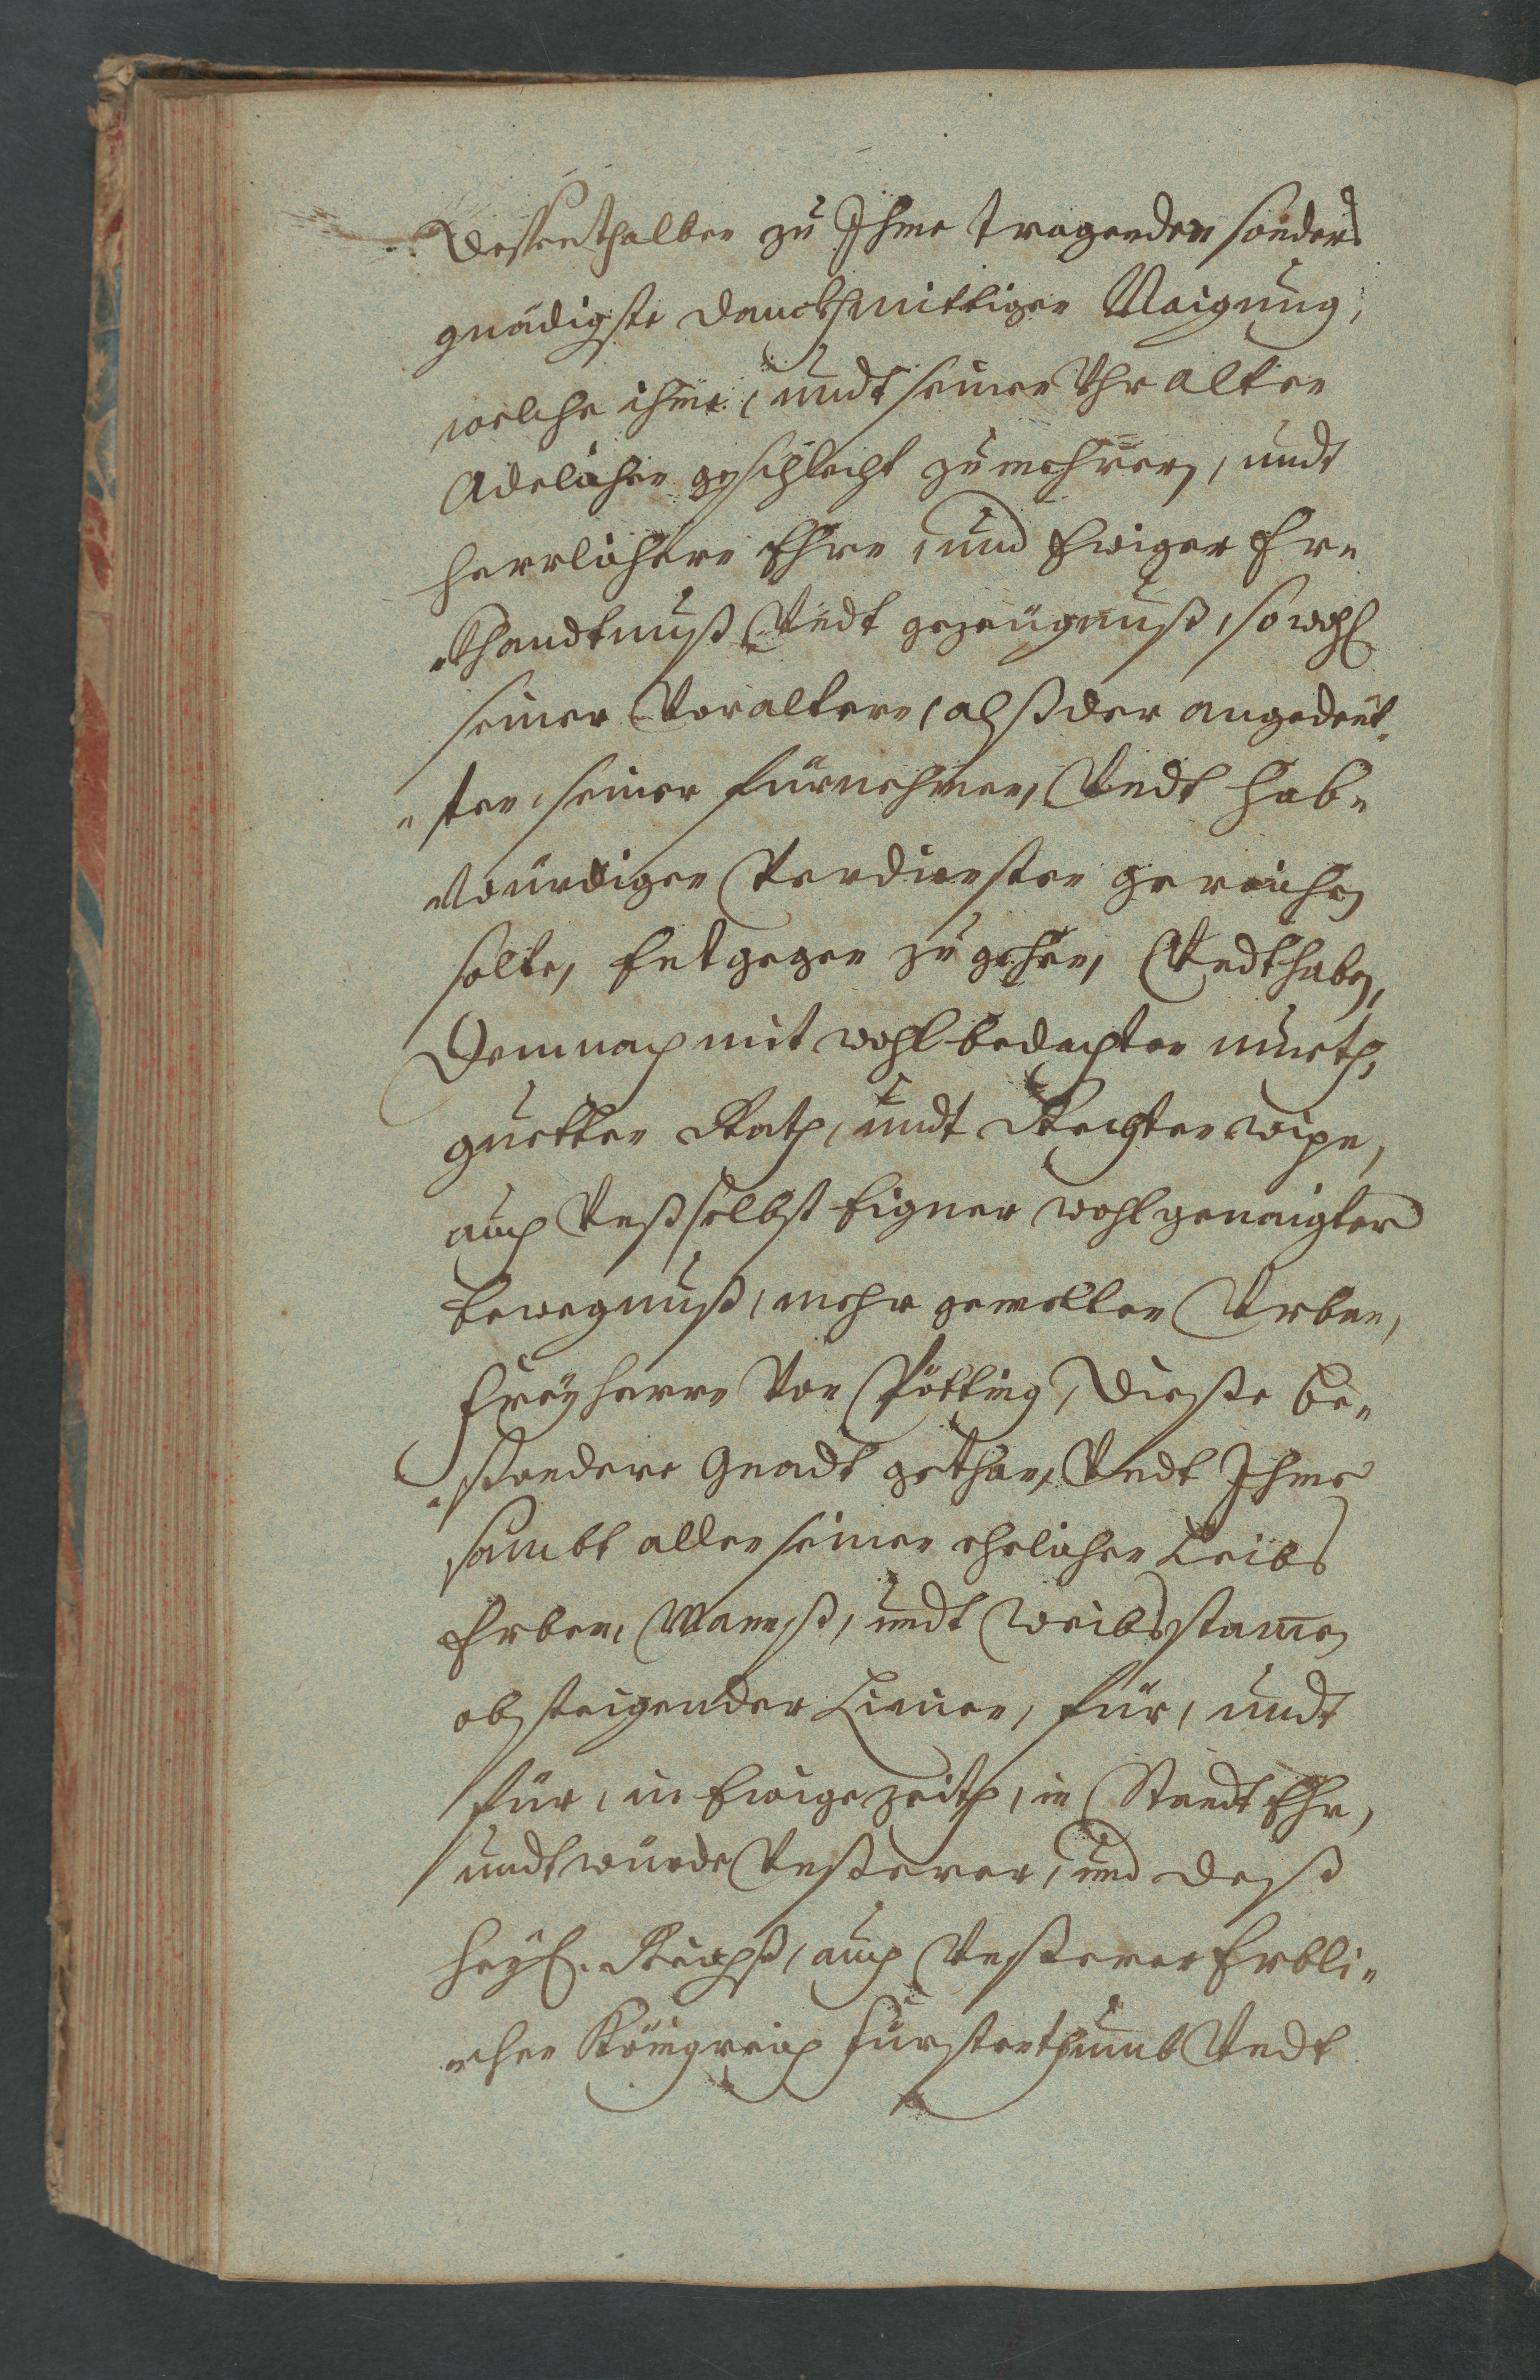 Dessenthalben zu Ihme tragenden sonders
gnädigste danckhmüttigen Naigung,
welche ihme, undt seinen Uhralten
Adelichen geschlecht zu mehrern, undt
herrlichern Ehrn, und Ewiger Er„
„khandtnuß Undt gezeügnuß, sowohl
seiner Voraltern, alß der angedeüt„
„ten seiner fürnehmen, Undt Hab„
„würdigen Verdiensten gereichen
solte, Entgegen zu gehen, Undt haben,
Demnach mit wohlbedachten mueth,
guetten Rath, undt Rechten wißen,
auch Unß selbst Eigner wohlgenaigter
bewegnuß, mehr gemelten Urban,
Freyherrn Von Pötting, Dieße be„
„sondere Gnadt gethan, Undt Ihme
sambt allen seinen ehelichen Leibs
Erben, Manß, undt Weibsstamen
absteigender Linien, für, undt
für, in Ewige zeith, in Standt Ehr,
undt würde Unßerer, und deß
Heyl. Reichß, auch Unßerer Erbli„
„chen Königreich Fürstenthumb Undt